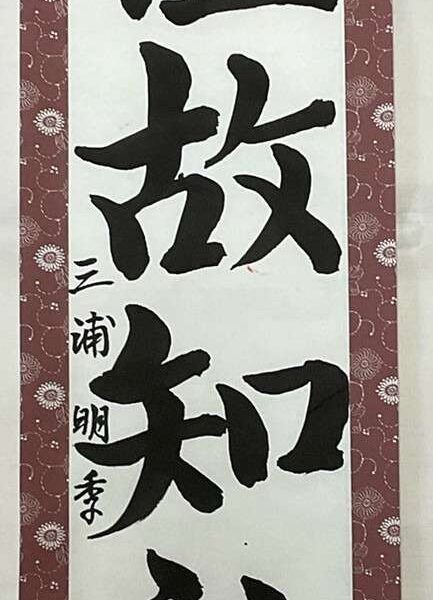 故知
三浦明季